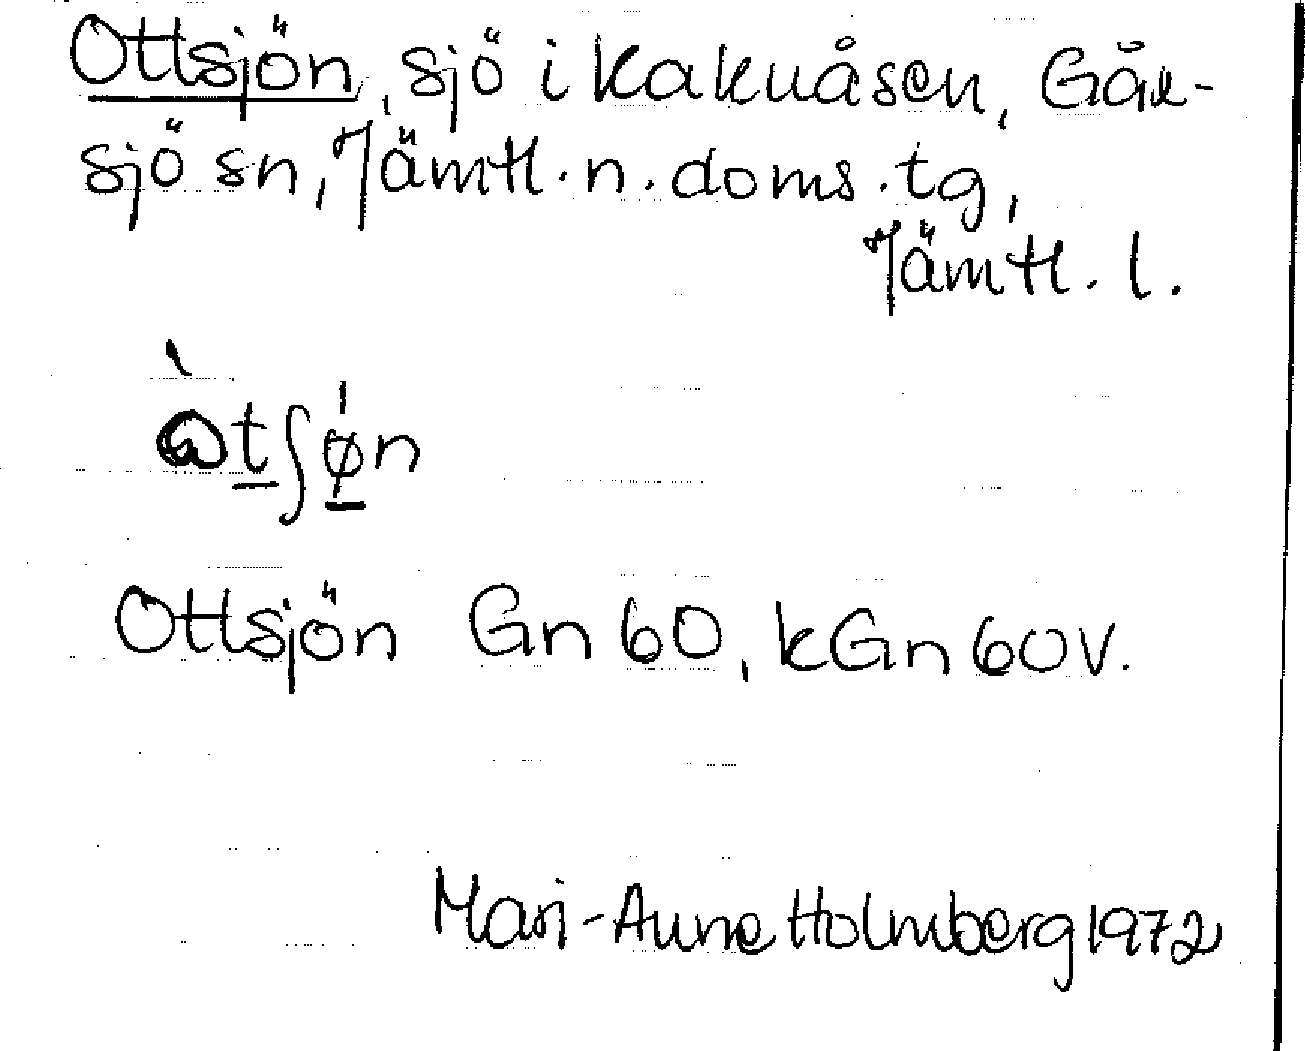 Ottsjön, sjö i Kakuåsen, Gåx-
sjö sn, Jämtl. n. doms. tg,
Jämtl. l.
Ottsjön Gn 60, kGn 60V.
Mari-Anne Holmberg 1972